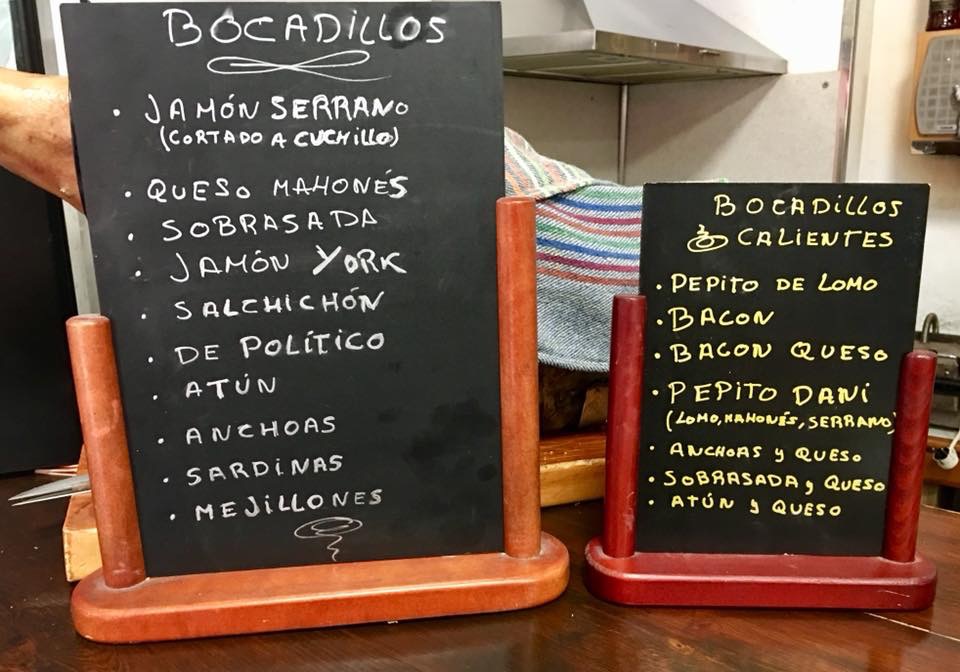 BOCADILLOS
· JAMÓN SERRANO
(CORTADO A CUCHILLO)
· QUESO MAHONÉS
· SOBRASADA
· JAMÓN YORK
· SALCHICHÓN
· DE POLÍTICO
· ATÚN
· ANCHOAS
· SARDINAS
· MEJILLONES
BOCADILLOS
CALIENTES
· PEPITO DE LOMO
· BACON
· BACON QUESO
· PEPITO DANI
(LOMO, MAHONÉS, SERRANO)
· ANCHOAS y QUESO
· SOBRASADA y QUESO
· ATÚN y QUESO